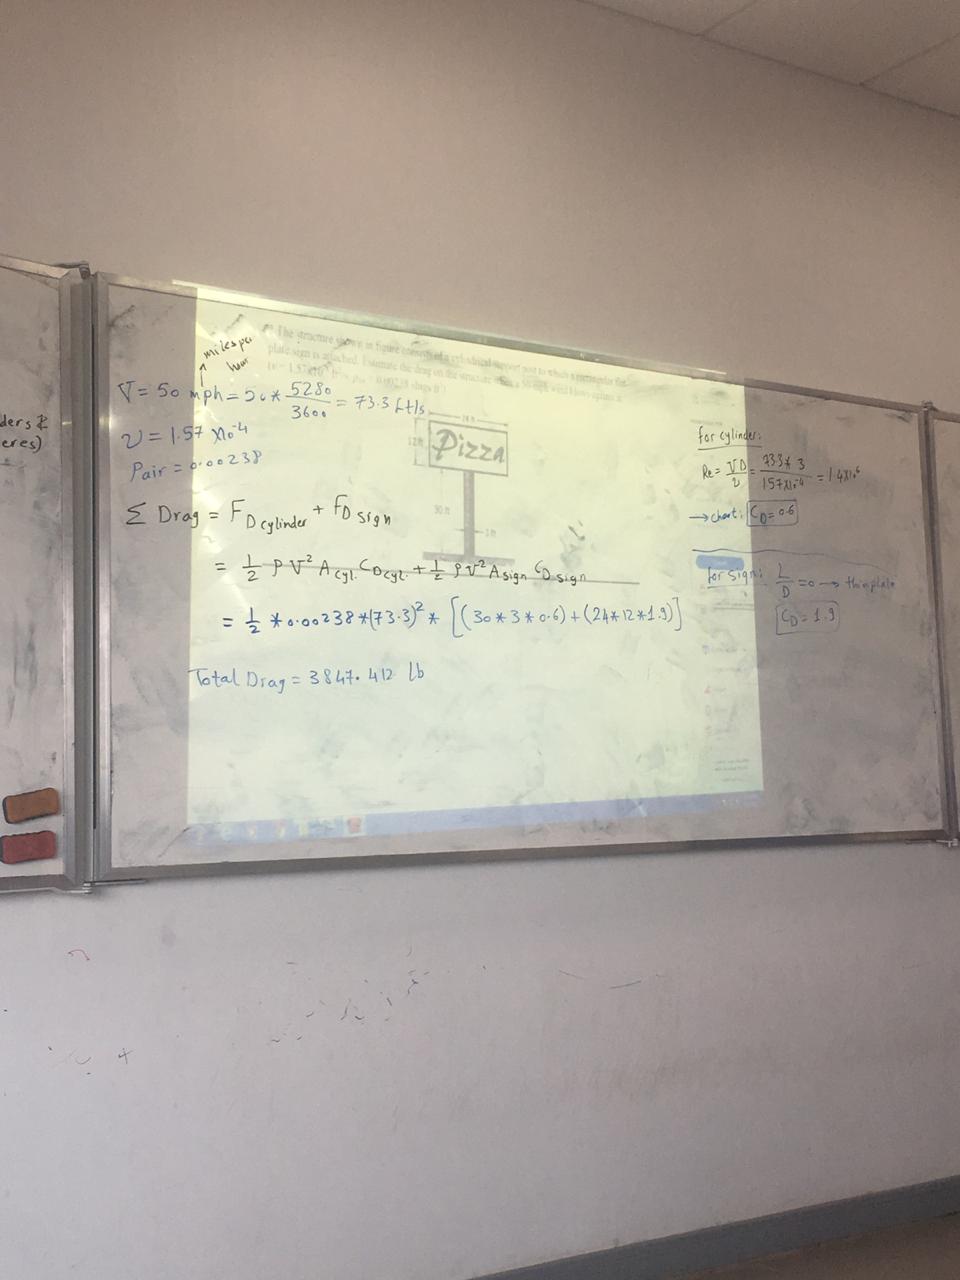 ders &
eres)
The structure shown in figure consists of a cylindrical support post to which a rectangular flat
plate sign is attached. Estimate the drag on the structure when a 50 mph wind blows against it.
miles per
hour
V = 50 mph = 50 * 5280/3600 = 73.3 ft/s
ν = 1.57 x10⁻⁴
ρair = 0.00238
Pizza
12 ft
30 ft
3 ft
Σ Drag = F_D cylinder + F_D sign
= 1/2 ρ V² A_cyl. C_D cyl. + 1/2 ρ V² A_sign C_D sign
= 1/2 * 0.00238 * (73.3)² * [(30*3*0.6) + (24*12*1.9)]
Total Drag = 3847.412 lb
for cylinder:
Re = VD/ν = 733* 3/1.57x10⁻⁴ = 1.4x10⁶
→ chart: C_D = 0.6
for sign: L/D = 0 → thin plate
C_D = 1.9